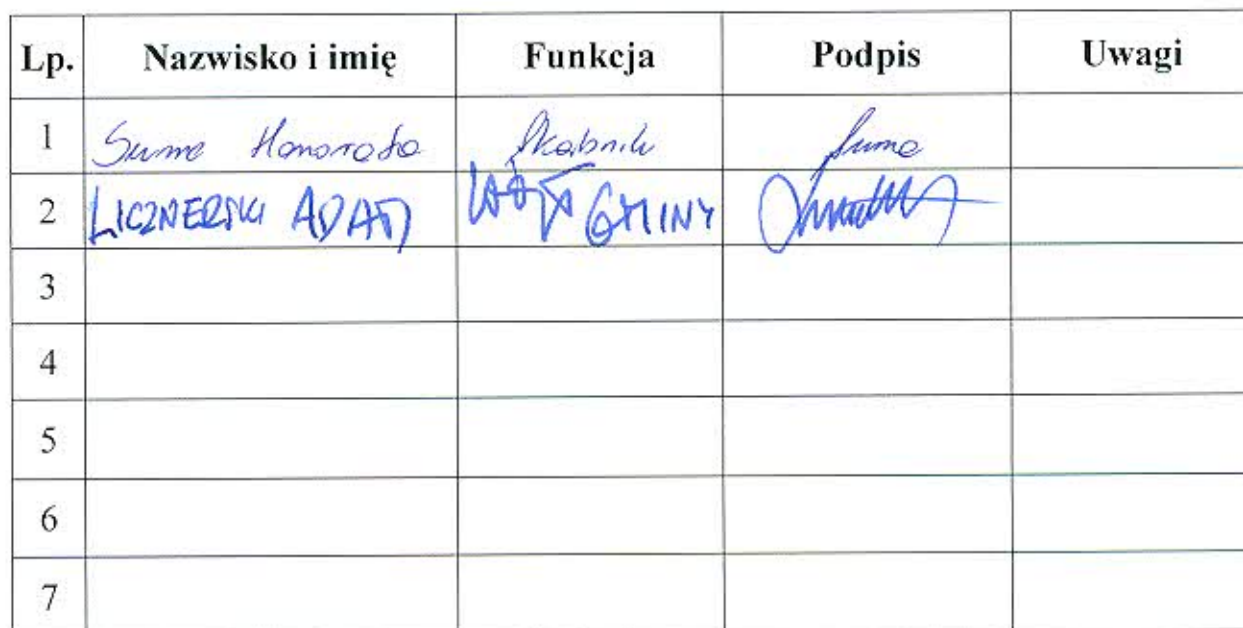 Lp. Nazwisko i imię Funkcja Podpis Uwagi
1 Suma Honorata Skarbnik Suma
2 LICZNERSKI ADAM WÓJT GMINY
3
4
5
6
7